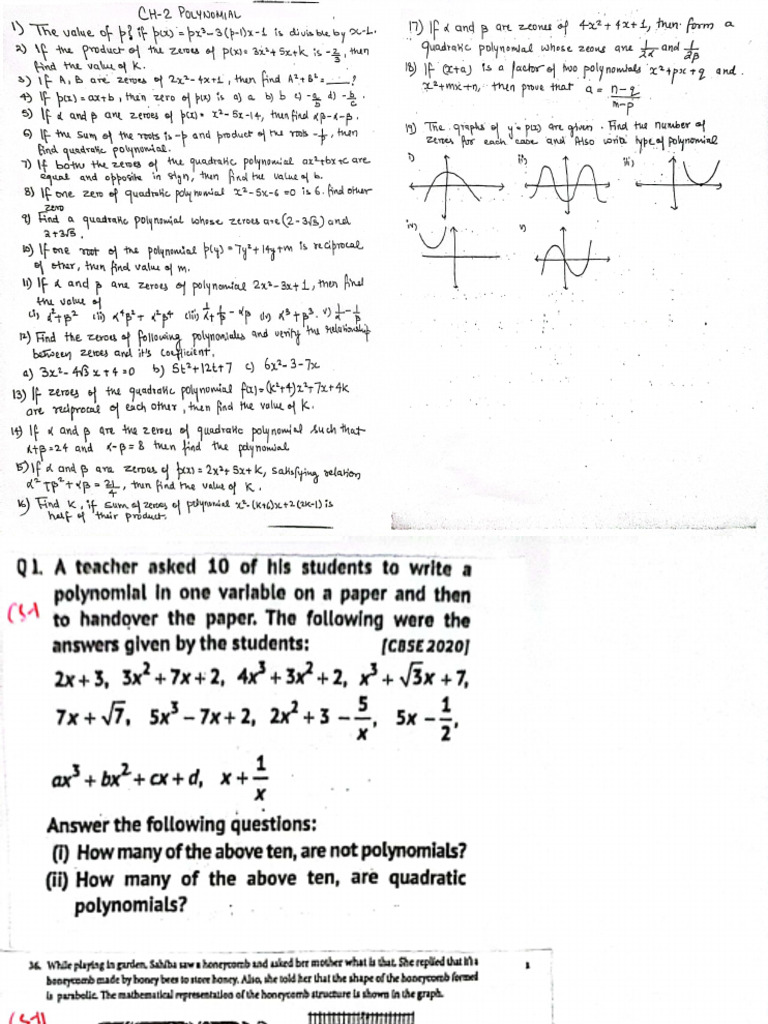 CH-2 POLYNOMIAL
1) The value of p? if p(x) = px³-3(p-1)x-1 is divisible by x-1.
2) If the product of the zeroes of p(x) = 3x²+5x+k is -2/3, then
find the value of k.
3) If A, B are zeroes of 2x²-4x+1, then find A²+B² = ____?
4) If p(x) = ax+b, then zero of p(x) is a) a b) b c) -a/b d) -b/c
5) If α and β are zeroes of p(x) = x²-5x-14, then find αβ-α-β.
6) If the sum of the roots is -p and product of the roots -1/p, then
find quadratic polynomial.
7) If both the zeroes of the quadratic polynomial ax²+bx+c are
equal and opposite in sign, then find the value of b.
8) If one zero of quadratic polynomial x²-5x-6=0 is 6. find other
zero
9) Find a quadratic polynomial whose zeroes are (2-3√3) and
2+3√3.
10) If one root of the polynomial p(y) = 7y²+14y+m is reciprocal
of other, then find value of m.
11) If α and β are zeroes of polynomial 2x²-3x+1, then find
the value of
(i) α²+β² (ii) α⁴β²+α²β⁴ (iii) 1/α+1/β-αβ (iv) α³+β³. v) 1/α-1/β
12) Find the zeroes of following polynomials and verify the relationship
between zeroes and it's coefficient.
a) 3x²-4√3x+4=0 b) 5t²+12t+7 c) 6x²-3-7x
13) If zeroes of the quadratic polynomial f(x)=(k²+4)x²+7x+4k
are reciprocal of each other, then find the value of k.
14) If α and β are the zeroes of quadratic polynomial such that
α+β=24 and α-β=8 then find the polynomial
15) If α and β are zeroes of p(x) = 2x²+5x+k, satisfying relation
α²+β²+αβ = 21/4, then find the value of k.
16) Find k, if sum of zeroes of polynomial x²-(k+6)x+2(2k-1) is
half of their product.
17) If α and β are zeroes of 4x²+4x+1, then form a
quadratic polynomial whose zeros are 1/2α and 1/2β
18) If (x+a) is a factor of two polynomials x²+px+q and
x²+mx+n, then prove that a = n-q/m-p
19) The graphs of y=p(x) are given. Find the number of
zeroes for each case and Also write type of polynomial
i) ii) iii)
iv) v)
Q1. A teacher asked 10 of his students to write a
polynomial in one variable on a paper and then
to handover the paper. The following were the
answers given by the students: [CBSE 2020]
2x + 3, 3x² + 7x + 2, 4x³ + 3x² + 2, x³ + √3x + 7,
7x + √7, 5x³ − 7x + 2, 2x² + 3 − 5/x, 5x − 1/2,
ax³ + bx² + cx + d, x + 1/x
Answer the following questions:
(i) How many of the above ten, are not polynomials?
(ii) How many of the above ten, are quadratic
polynomials?
36. While playing in garden, Sahiba saw a honeycomb and asked her mother what is that. She replied that it's a
honeycomb made by honey bees to store honey. Also, she told her that the shape of the honeycomb formed
is parabolic. The mathematical representation of the honeycomb structure is shown in the graph.